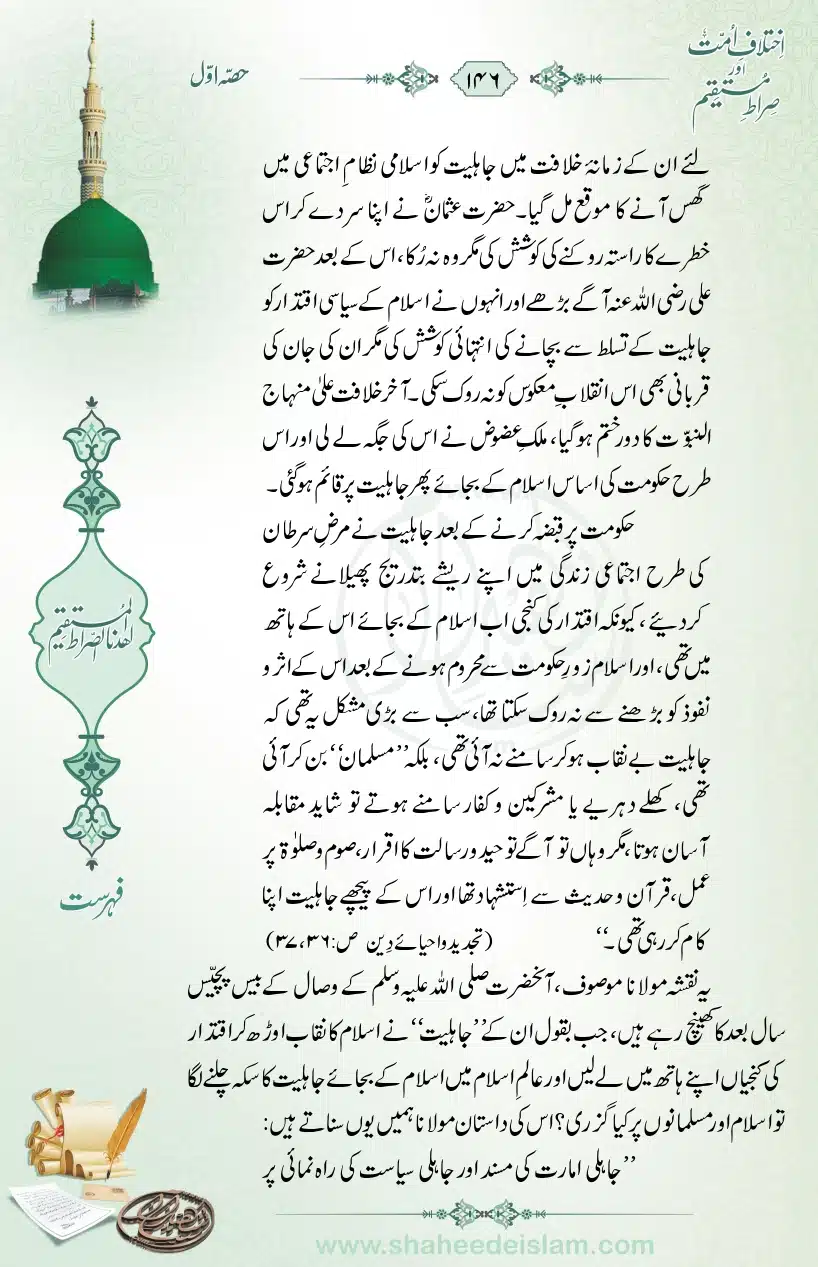 اِختلافِ اُمّت
اور
صِراطِ مُستقیم
۱۴۶
حصّہ اوّل
لئے ان کے زمانۂ خلافت میں جاہلیت کو اسلامی نظامِ اجتماعی میں
گھس آنے کا موقع مل گیا۔ حضرت عثمانؓ نے اپنا سر دے کر اس
خطرے کا راستہ روکنے کی کوشش کی مگر وہ نہ رُکا، اس کے بعد حضرت
علی رضی اللہ عنہ آگے بڑھے اور انہوں نے اسلام کے سیاسی اقتدار کو
جاہلیت کے تسلط سے بچانے کی انتہائی کوشش کی مگر ان کی جان کی
قربانی بھی اس انقلابِ معکوس کو نہ روک سکی۔ آخر خلافت علیٰ منہاج
النبوّت کا دور ختم ہوگیا، ملکِ عضوض نے اس کی جگہ لے لی اور اس
طرح حکومت کی اساس اسلام کے بجائے پھر جاہلیت پر قائم ہوگئی۔
حکومت پر قبضہ کرنے کے بعد جاہلیت نے مرضِ سرطان
کی طرح اجتماعی زندگی میں اپنے ریشے بتدریج پھیلانے شروع
کردئیے، کیونکہ اقتدار کی کنجی اب اسلام کے بجائے اس کے ہاتھ
میں تھی، اور اسلام زورِ حکومت سے محروم ہونے کے بعد اس کے اثر و
نفوذ کو بڑھنے سے نہ روک سکتا تھا، سب سے بڑی مشکل یہ تھی کہ
جاہلیت بے نقاب ہوکر سامنے نہ آئی تھی، بلکہ ’’مسلمان‘‘ بن کر آئی
تھی، کھلے دہریے یا مشرکین و کفار سامنے ہوتے تو شاید مقابلہ
آسان ہوتا، مگر وہاں تو آگے توحید و رسالت کا اقرار، صوم وصلوٰة پر
عمل، قرآن وحدیث سے اِستشہاد تھا اور اس کے پیچھے جاہلیت اپنا
کام کر رہی تھی۔‘‘ (تجدید واحیائے دِین ص:۳۶، ۳۷)
یہ نقشہ مولانا موصوف، آنحضرت صلی اللہ علیہ وسلم کے وصال کے بیس پچیّس
سال بعد کا کھینچ رہے ہیں، جب بقول ان کے ’’جاہلیت‘‘ نے اسلام کا نقاب اوڑھ کر اقتدار
کی کنجیاں اپنے ہاتھ میں لے لیں اور عالمِ اسلام میں اسلام کے بجائے جاہلیت کا سکہ چلنے لگا
تو اسلام اور مسلمانوں پر کیا گزری؟ اس کی داستان مولانا ہمیں یوں سناتے ہیں:
’’جاہلی امارت کی مسند اور جاہلی سیاست کی راہ نمائی پر
اهدنا الصّراط المُستقيم
فہرست
www.shaheedeislam.com